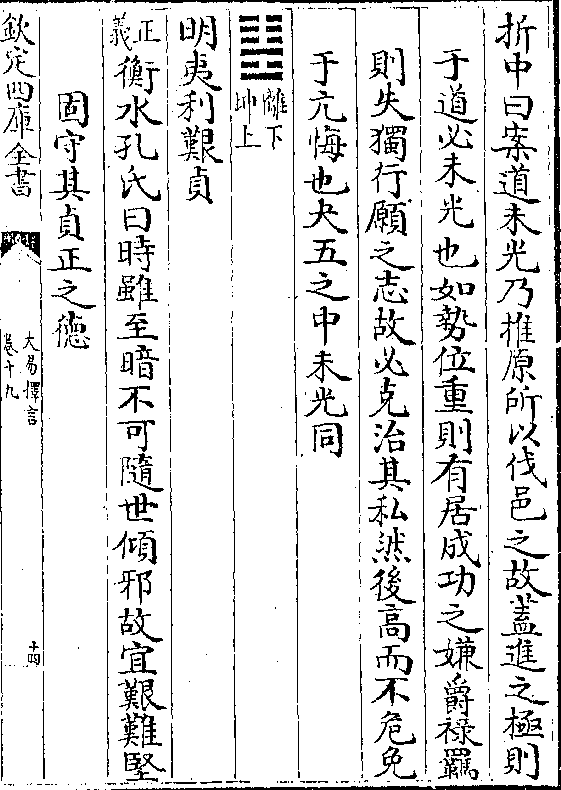 折中曰案道未光乃推原所以伐邑之故蓋進之極則
于道必未光也如勢位重則有居成功之嫌爵祿羈
則失獨行願之志故必克治其私然後高而不危免
于亢悔也夬五之中未光同
離下
坤上
明夷利艱貞
正義
衡水孔氏曰時雖至暗不可隨世傾邪故宜艱難堅
固守其貞正之德
欽定四庫全書
大易擇言
卷十九
十四